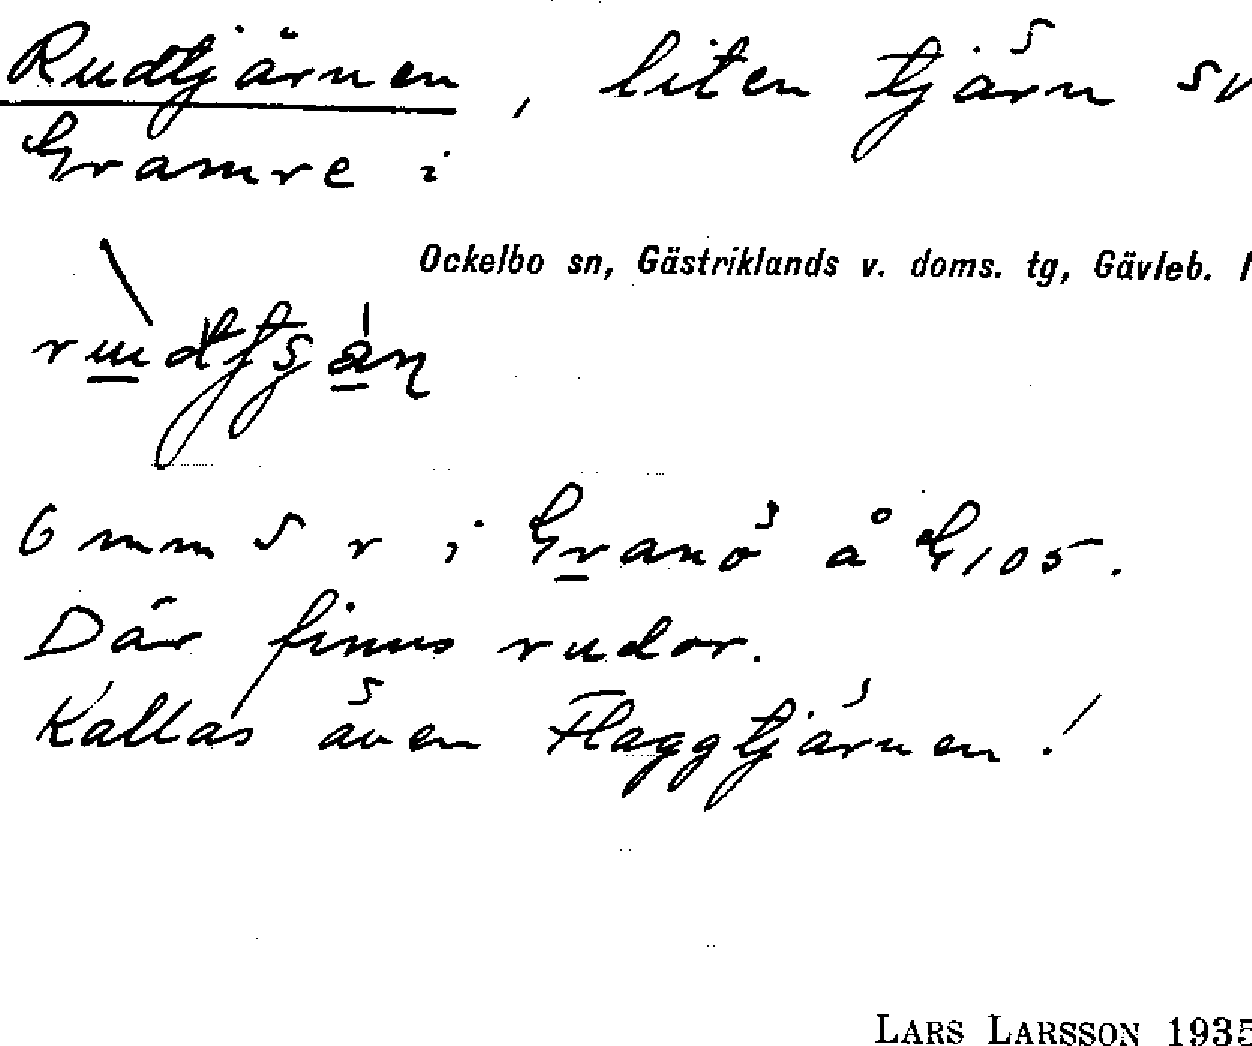 Rudtjärnen, liten tjärn sv
Gramre i
Ockelbo sn, Gästriklands v. doms. tg, Gävleb. l
6 mm S r i Granö å G 105.
Där finns rudor.
Kallas även Flaggtjärnen!
LARS LARSSON 1935